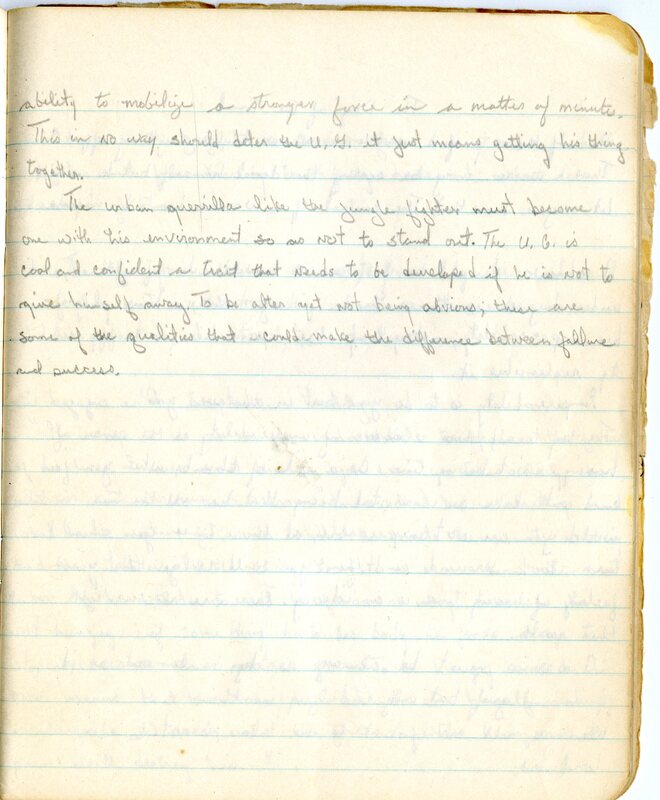 ability to mobilize a stronger force in a matter of minute.
This in no way should deter the U. G. it just means getting his thing
together.
The urban guerilla like the jungle fighter must become
one with his environment so as not to stand out. The U. G. is
cool and confident a trait that needs to be developed if he is not to
give himself away. To be alter yet not being obvious; these are
some of the qualities that could make the difference between failure
and success.